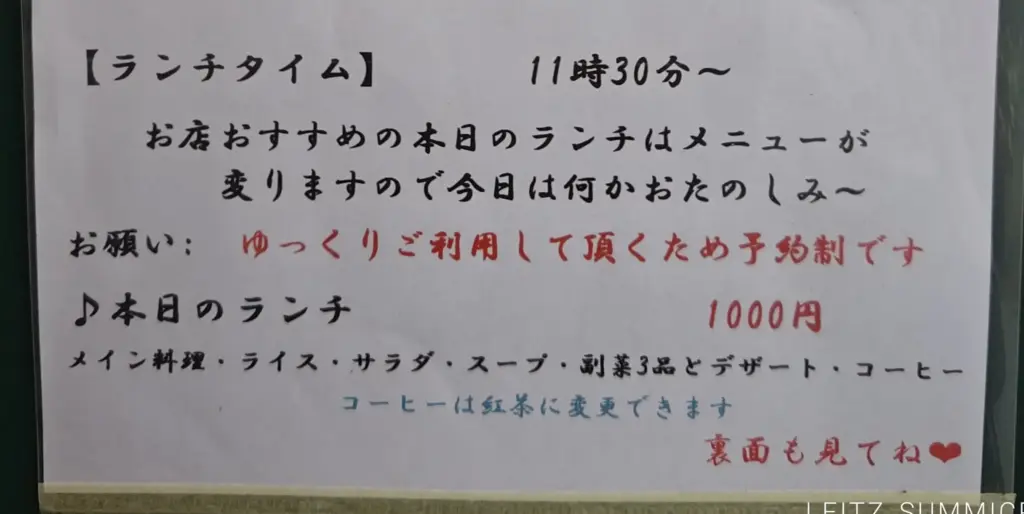 【ランチタイム】 11時30分～
お店おすすめの本日のランチはメニューが
変りますので今日は何かおたのしみ～
お願い: ゆっくりご利用して頂くため予約制です
♪本日のランチ 1000円
メイン料理・ライス・サラダ・スープ・副菜3品とデザート・コーヒー
コーヒーは紅茶に変更できます
裏面も見てね❤
LEITZ SUMMIC